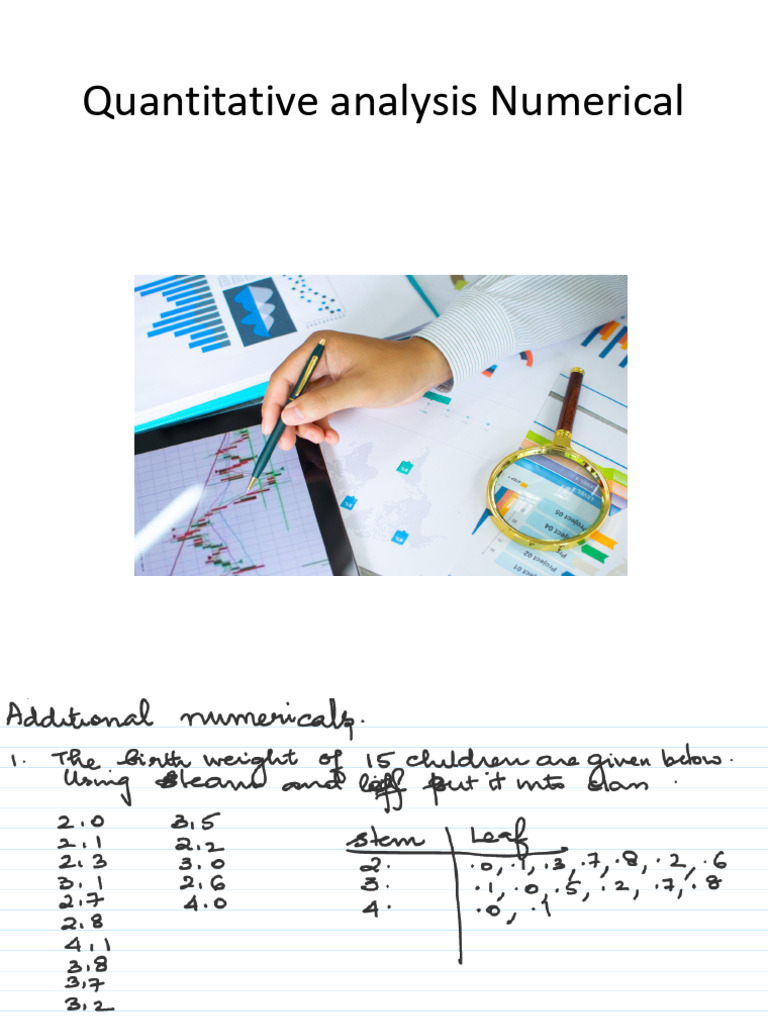 Quantitative analysis Numerical
Project 05
Project 04
Project 01
Additional numericals.
1. The birth weight of 15 children are given below.
Using steam and leaf put it into class.
2.0
2.1
2.3
3.1
2.7
2.8
4.1
3.8
3.7
3.2
3.5
2.2
3.0
2.6
4.0
Stem Leaf
2. .0, .1, .3, .7, .8, .2, .6
3. .1, .0, .5, .2, .7, .8
4. .0, .1